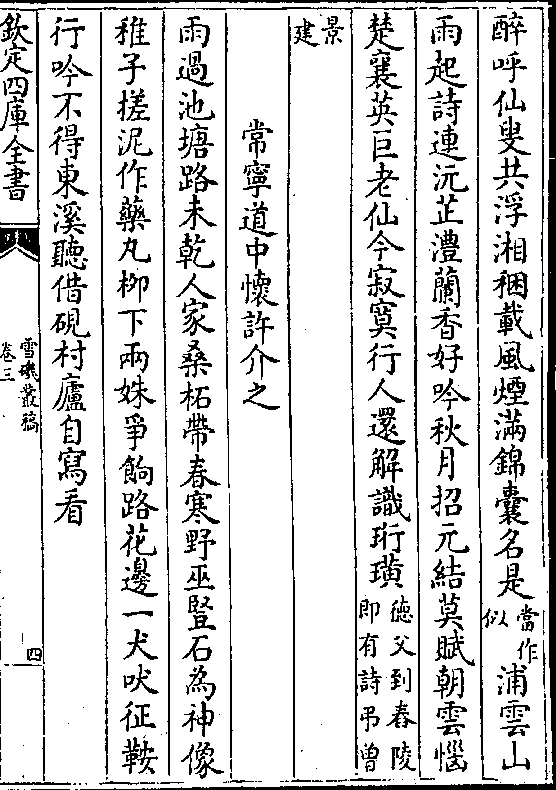 醉呼仙叟共浮湘稇載風煙滿錦囊名是當作似浦雲山
雨起詩連沅芷澧蘭香好吟秋月招元結莫賦朝雲惱
楚襄英巨老仙今寂寞行人還解識珩璜德父到舂陵即有詩弔曾
景建
常寧道中懷許介之
雨過池塘路未乾人家桑柘帶春寒野巫豎石為神像
稚子搓泥作藥丸栁下兩姝爭餉路花邊一犬吠征鞍
行吟不得東溪聽借硯村廬自寫看
欽定四庫全書
雪磯叢稿
卷三
四